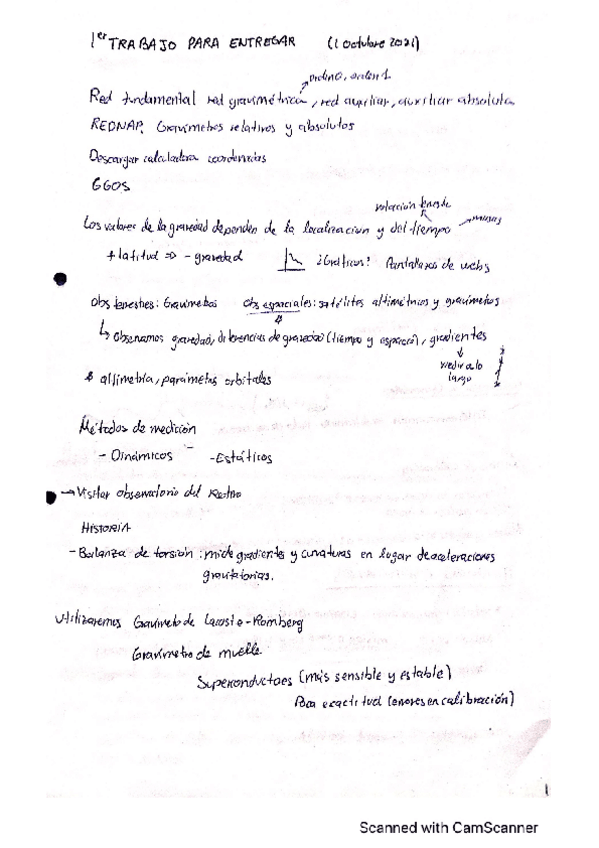 1er TRABAJO PARA ENTREGAR (1 octubre 2021)
orden 0, orden 1
Red fundamental red gravimétrica, red auxiliar, auxiliar absoluta
REDNAP. Gravímetros relativos y absolutos
Descargar calculadora coordenadas
GGOS
variación
mareas
Los valores de la gravedad dependen de la localización y del tiempo
+ latitud => - gravedad ¿Gráficas? Pantallazos de webs
Obs terrestres: Gravímetros Obs espaciales: satélites altimétricos y gravímetros
Observamos gravedad, diferencias de gravedad (tiempo y espacio), gradientes
medir a lo
largo
* altimetría, parámetros orbitales
Métodos de medición
- Dinámicos - Estáticos
→ Visitar observatorio del
HISTORIA
- Balanza de torsión: mide gradientes y curvaturas en lugar de aceleraciones
gravitatorias.
Utilizaremos Gravímetro de Lacoste-Romberg
Gravímetro de muelle
Superconductores (más sensible y estable)
Poca exactitud (errores en calibración)
1
Scanned with CamScanner